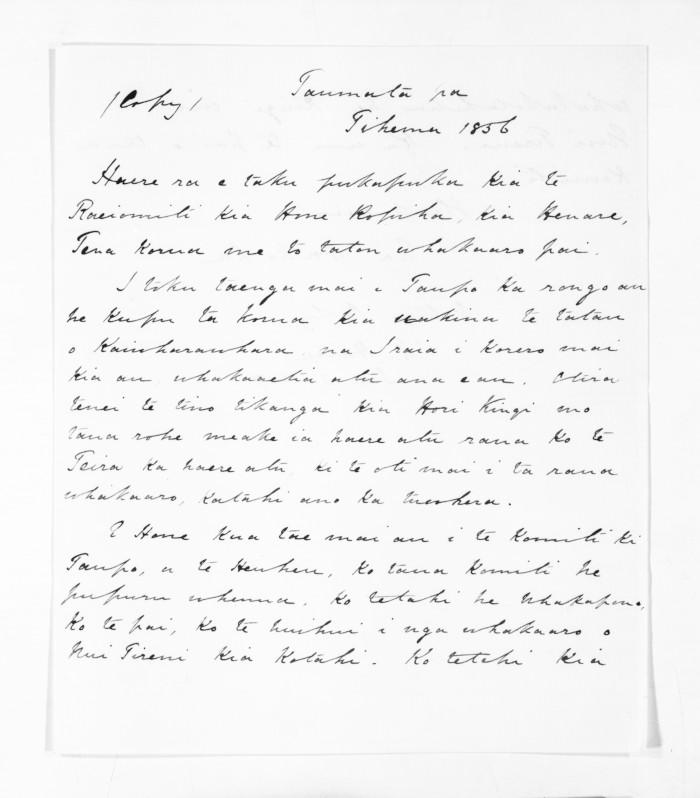 (Copy) Taumata pa
Tihema 1856
Haere ra e taku pukapuka kia te
Raeiomiti kia Hone Ropiha, kia Henare,
Tena korua me to tatou whakaaro pai.
I toku taenga mai i Taupo ka rongo au
he kupu ta korua kia uakina te tatau
o Kaiwharawhara, na Iraia i korero mai
kia au whakaaetia atu ana e au. Otira
tenei te tino tikanga kia Hori Kingi mo
tana rohe meake ia haere atu raua ko te
Teira ka haere atu, ki te oti mai i ta raua
whakaaro, katahi ano ka tuwhera.
E Hone kua tae mai au i te Komiti ki
Taupo, a te Heuheu, ko tana Komiti he
pupuru whenua. Ko tetahi he whakapono,
ko te pai, ko te huihui i nga whakaaro o
Nui Tireni kia kotahi. Ko tetahi kia